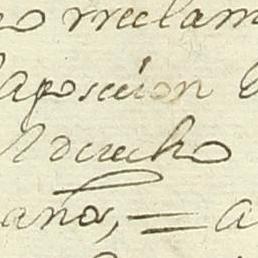 o rreclam
aposecion
derecho
anos, = a